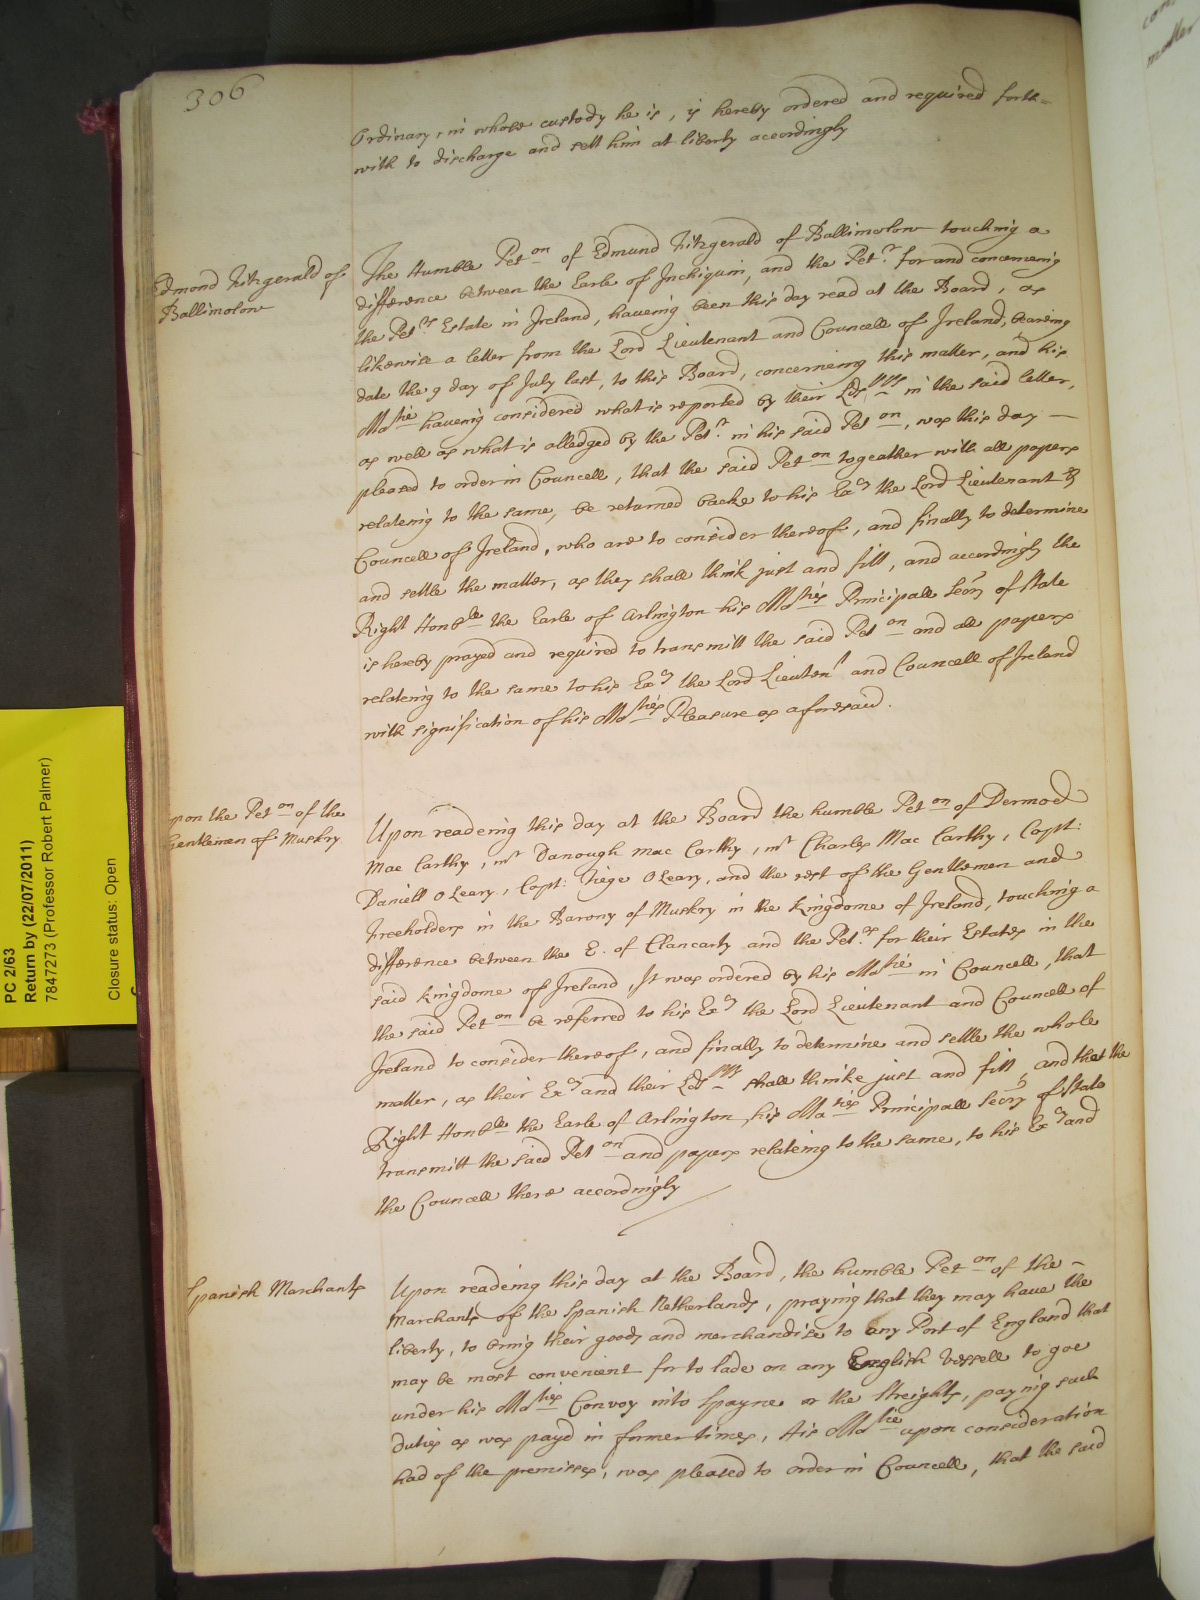 306
Ordinary, in whose custody he is, is hereby ordered and required forth=
with to discharge and sett him at liberty accordingly
Edmond Fitzgerald of
Ballimolow
The Humble Peton of Edmund Fitzgerald of Ballimolow touching a
difference between the Earle of Inchiquin, and the Petr. for and concerneing
the Petrs Estate in Ireland, haveing been this day read at the Board, as
likewise a letter from the Lord Lieutenant and Councell of Ireland, bearing
date the 9 day of July last, to this Board, concerneing this matter, and his
Matie haveing considered what is reported by their Ldpps in the said letter,
as well as what is alledged by the Petr. in his said Peton, was this day —
pleased to order in Councell, that the said Peton togeather with all papers
relateing to the same, be returned backe to his Excy the Lord Lieutenant &
Councell of Ireland, who are to consider thereof, and finally to determine
and settle the matter, as they shall think just and fitt, and accordingly the
Right Honble the Earle of Arlington his Maties Principall Secry of State
is hereby prayed and required to transmitt the said Peton and all papers
relateing to the same to his Excy the Lord Lieutent and Councell of Ireland
with signification of his Maties Pleasure as aforesaid.
upon the Peton of the
Gentlemen of Muskry
Upon readeing this day at the Board the humble Peton of Dermod
Mac Carthy, mr Danough Mac Carthy, mr Charles Mac Carthy, Capt:
Daniell O Leary, Capt: Teige O Leary, and the rest of the Gentlemen and
Freeholders in the Barony of Muskry in the Kingdome of Ireland, touching a
difference between the E. of Clancarty and the Petrs for their Estates in the
said Kingdome of Ireland, It was ordered by his Matie in Councell, that
the said Peton be referred to his Excy the Lord Lieutenant and Councell of
Ireland to consider thereof, and finally to determine and settle the whole
matter, as their Excy and their Ldpps shall thinke just and fitt, and that the
Right Honble the Earle of Arlington his Maties Principall Secry of State
transmitt the said Peton and papers relateing to the same, to his Excy and
the Councell there accordingly
Spanish Marchants
Upon readeing this day at the Board, the humble Peton of the –
Marchants of the Spanish Netherlands, praying that they may have the
liberty, to bring their goods and merchandise to any Port of England that
may be most convenient for to lade on any English vessell to goe
under his Maties Convoy into Spayne or the Streights, paying such
duties as was payd in former times, His Matie upon consideration
had of the premisses, was pleased to order in Councell, that the said
PC 2/63
Return by (22/07/2011)
7847273 (Professor Robert Palmer)
Closure status: Open
matter